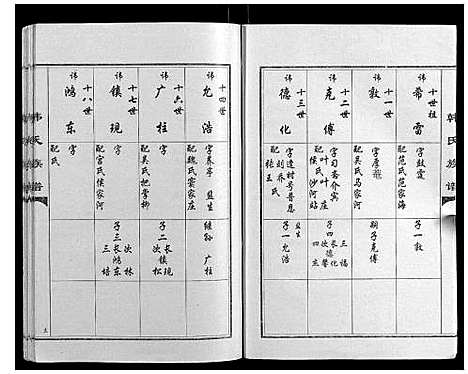 韩氏族谱
十世祖
讳
希雷
字鼓霆
配范氏范家海
子一敦
十一世
讳
敦
字厚菴
配吴氏马家河
嗣子克傅
十二世
讳
克傅
字习斋介宾
配叶叶庄
侯氏沙河站
子四 长德化
三福
四
十三世
讳
德化
字逢时号普恩
配刘乔氏
张王氏
监生
子一允浩
十四世
讳
允浩
字养亭 监生
配魏氏窦家庄
继孙 广柱
十六世
讳
广柱
字
配吴氏把掌柳
子二 长镇现
次镇松
十七世
讳
镇现
字
配宫氏侯家河
子三 长鸿东
次林
三培
十八世
讳
鸿东
字
配氏
韩氏族谱